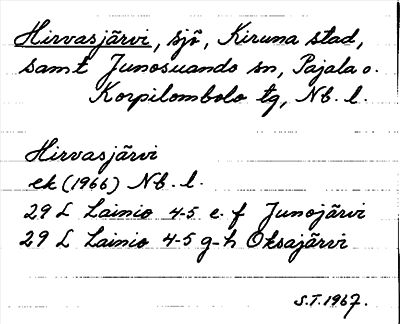 Hirvasjärvi, sjö, Kiruna stad,
samt Junosuando sn, Pajala o.
Korpilombolo tg, Nb. l.
Hirvasjärvi
ek (1966) Nb. l.
29 L Lainio 4-5 e-f Junojärvi
29 L Lainio 4-5 g-h Oksajärvi
S.T. 1967.